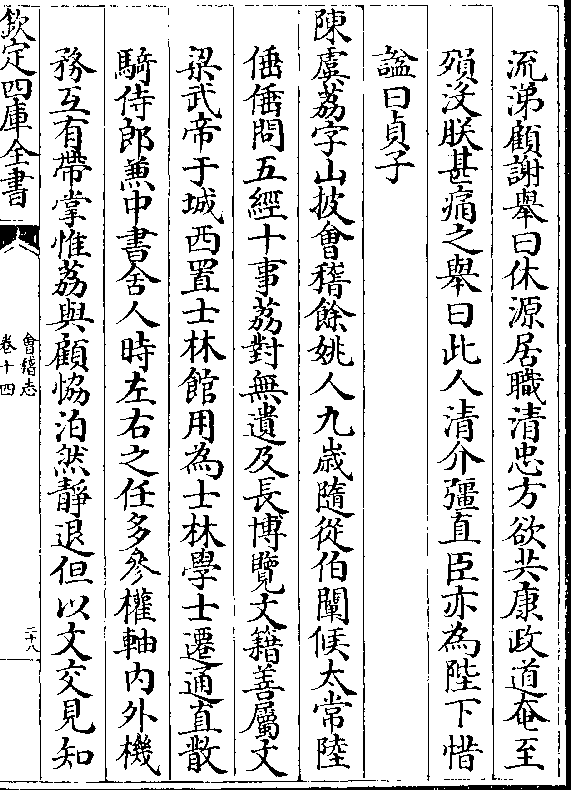 流涕顧謝舉曰休源居職清忠方欲共康政道奄至
殞沒朕甚痛之舉曰此人清介彊直臣亦為陛下惜
謚曰貞子
陳虞荔字山披會稽餘姚人九歲隨從伯闡候太常陸
倕倕問五經十事荔對無遺及長博覽文籍善屬文
梁武帝于城西置士林館用為士林學士遷通直散
騎侍郎兼中書舍人時左右之任多參權軸內外機
務互有帶掌惟荔與顧恊泊然靜退但以文交見知
欽定四庫全書
會稽志
卷十四
二十八